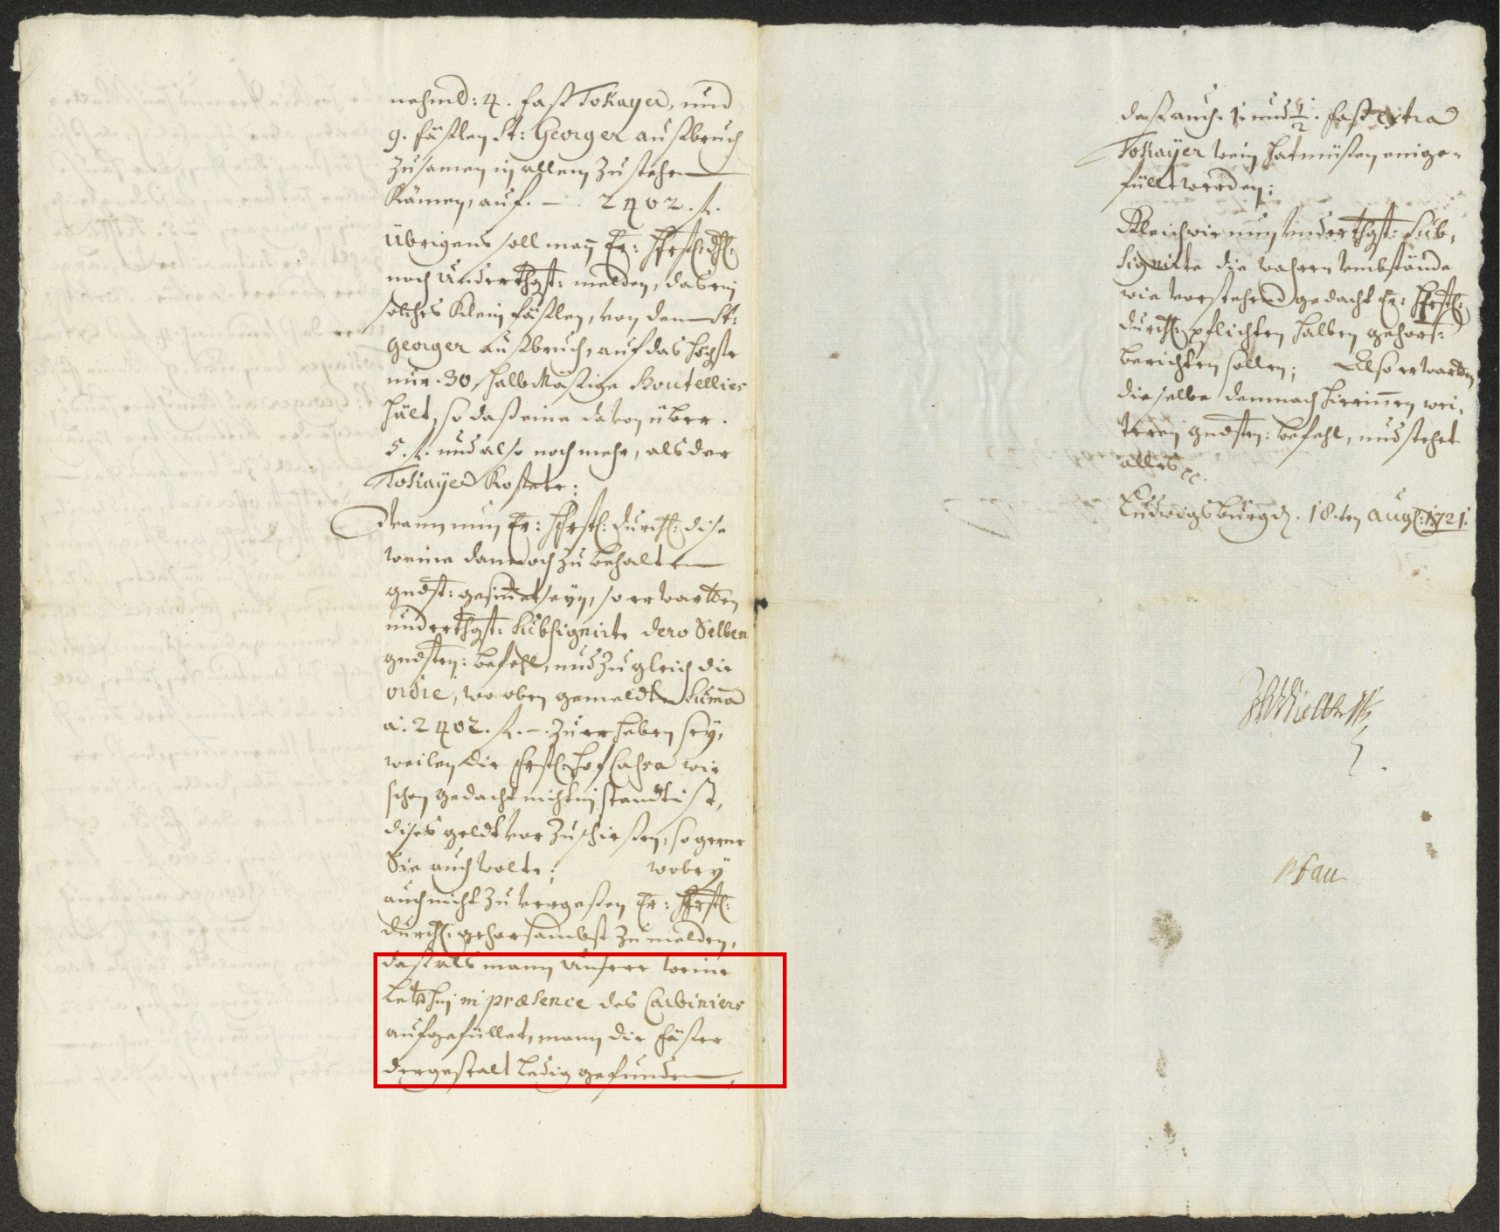 nehmd: 4. fass Tokayer, und
9. fässlen St: Georger aussbruch
zusamen in allem zu stehen
kämen, auf. — . 2402. f.
übrigens soll man Er: hfrstl: dhl:
noch underthgst: melden, das ein
solches klein fässlen, von dem St:
Georger aussbruch, auf das höchste
nur. 30, halb mässige Boutellies
hält, so dass eine davon über.
5. f. und also noch mehr, als der
Tokayer kostete;
Wann nun Er: hfrstl: durchl: dise
weine dannoch zu behalten
gndst: gesinnet seyn, so erwartten
underthgst: subsignirte dero selben
gndsten: befehl, und zugleich die
ordre, wo oben gemeldte Summa
a: 2402. f. — zu erheben sey,
weilen die hfrstl: hof Cassa wie
schon gedacht nicht in standt ist,
dises geldt vorzuschiessen, so gerne
Sie auch wolte; wobey
auch nicht zu vergessen Er: hfrstl:
durchl: gehorsambst zu melden,
dass als mann unsere weine
letzthin in præsence des Carbiniers
aufgefüllet, mann die fässer
dergestalt ledig gefunden,
dass auch. 1. und 1/2. fass extra
Tokayer wein hat müssen eingefüllt werden;
Gleichwie nun underthgst: sub-
signirte die wahren umbstände
wie vorstehend gedacht Er: hfrstl:
durchl: pflichten halben gehors:
berichten sollen; Also erwartten
dieselbe demnach hierinnen wei-
teren gndsten: befehl, und stehet
alles
Ludwigsburg d. 18.ten Aug: 1721.
Pfau